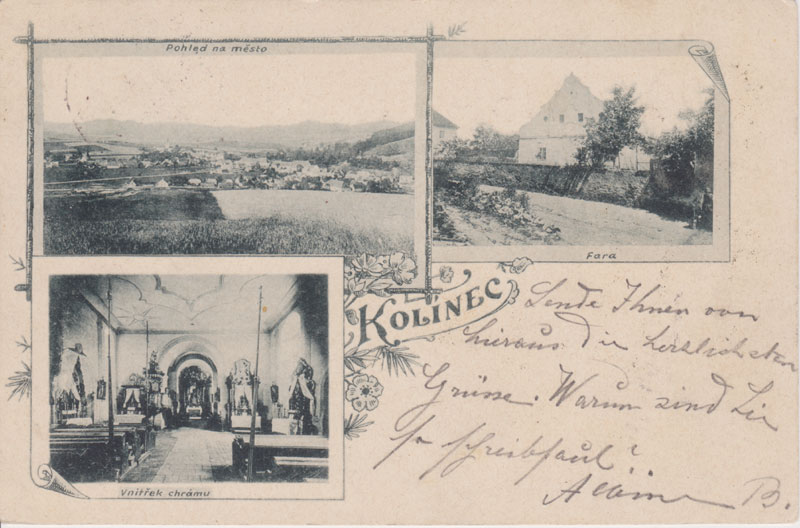 Pohled na město
Fara
KOLÍNEC
Vnitřek chrámu
Sende Ihnen von
hieraus die herzlichsten
Grüsse. Warum sind Sie
so schreibfaul?
B.